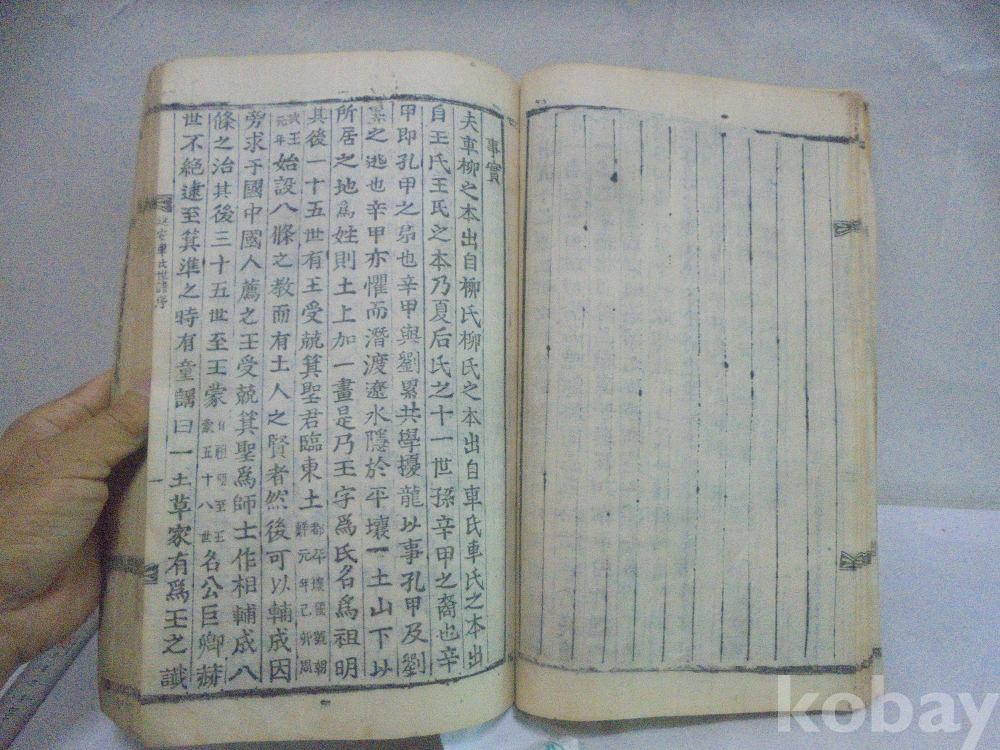 事實
夫車柳之本出自柳氏柳氏之本出自車氏車氏之本出
自王氏王氏之本乃夏后氏之十一世孫辛甲之裔也辛
甲即孔甲之也辛甲與劉累共學擾龍以事孔甲及劉
累之逃也辛甲亦懼而潛渡遼水隱於平壤一土山下以
所居之地爲姓則土上加一畫是乃王字爲氏名爲祖明
其後一十五世有王受兢箕聖君臨東土都平壤國號朝鮮元年己卯周
武王元年始設八條之教而有土人之賢者然後可以輔成因
旁求于國中國人薦之王受兢箕聖爲師士作相輔成八
條之治其後三十五世至王蒙自祖明至王蒙五十八世名公巨卿赫
世不絶逮至箕準之時有童謠曰一土草家有爲王之讖
車氏世譜序
一
kobay